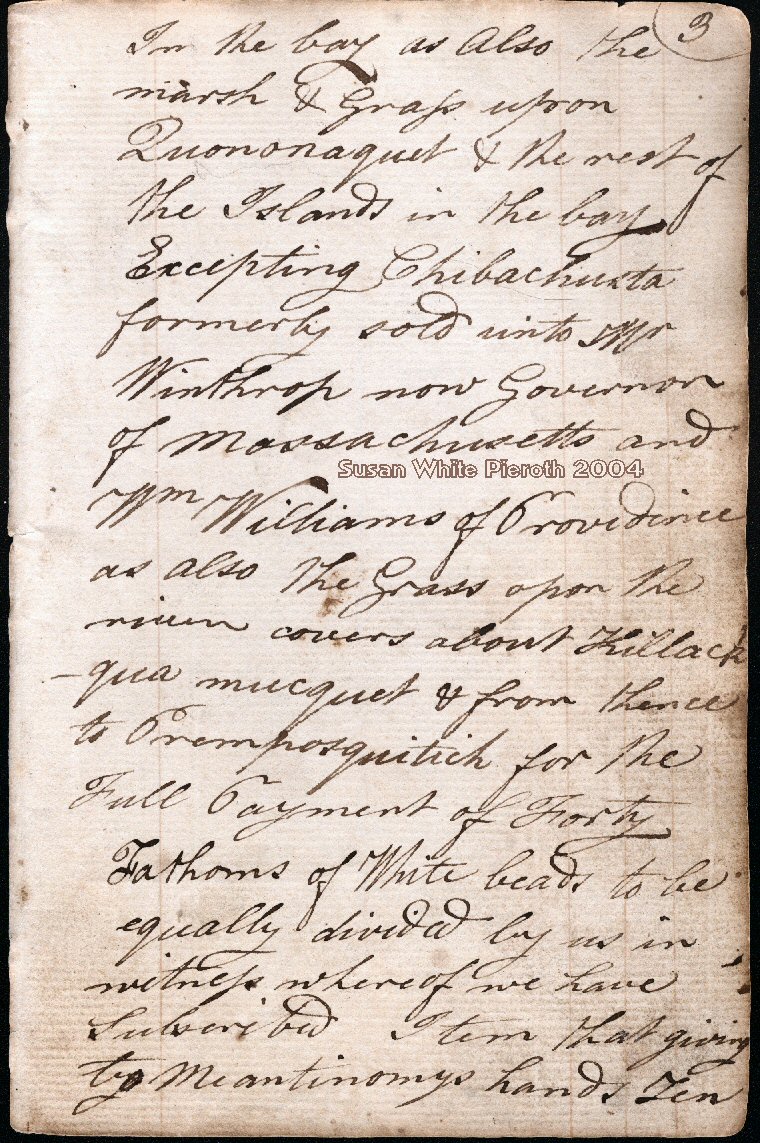 3
In the bay as also the
marsh & Grass upon
Quononaquet & the rest of
the Islands in the bay
Excepting Chibachuxta
formerly sold unto Mr
Winthrop now Governor
of Massachusetts and
Susan White Pieroth 2004
Wm Williams of Providince
as also the Grass opon the
riven covers about Killack
-qua mucquet & from thence
to Prempasquitich for the
Full Payment of Forty
Fathoms of White beads to be
equally divided by us in
witness whereof we have
Subscribed Item that giving
by Meantinomys hands Ten